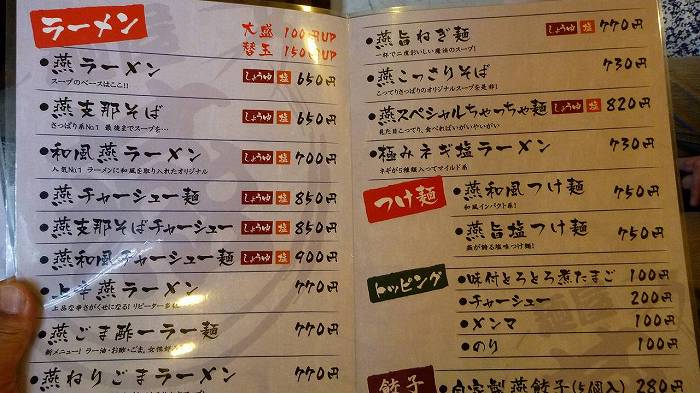 ラーメン
大盛 100円UP
替玉 150円UP
●燕ラーメン しょうゆ 塩 650円
スープのベースはここ!!
●燕支那そば しょうゆ 塩 650円
さっぱり系No.1 最後までスープを…
●和風燕ラーメン しょうゆ 塩 700円
人気No.1 ラーメンに和風を取り入れたオリジナル
●燕チャーシュー麺 しょうゆ 塩 850円
●燕支那そばチャーシュー しょうゆ 塩 850円
●燕和風チャーシュー麺 しょうゆ 塩 900円
●上辛燕ラーメン 770円
上品な辛さがくせになる! リピーター多
●燕ごま酢ーラー麺 770円
新メニュー! ラー油・お酢・ごま、女性
●燕ねりごまラーメン 770円
●燕旨ねぎ麺 しょうゆ 塩 770円
一杯で二度おいしい魔法のスープ!
●燕こっさりそば 730円
こってりさっぱりのオリジナルスープを是非!
●燕スペシャルちゃっちゃ麺 しょうゆ 塩 820円
見た目こってり、食べればいがいやいがい
●極みネギ塩ラーメン 730円
ネギが5種類入ってマイルド系
つけ麺
●燕和風つけ麺 750円
和風インパクト系!
●燕旨塩つけ麺 750円
燕が誇る塩味つけ麺!
トッピング
●味付とろとろ煮たまご 100円
●チャーシュー 200円
●メンマ 100円
●のり 100円
餃子
●自家製燕餃子(5個入) 280円